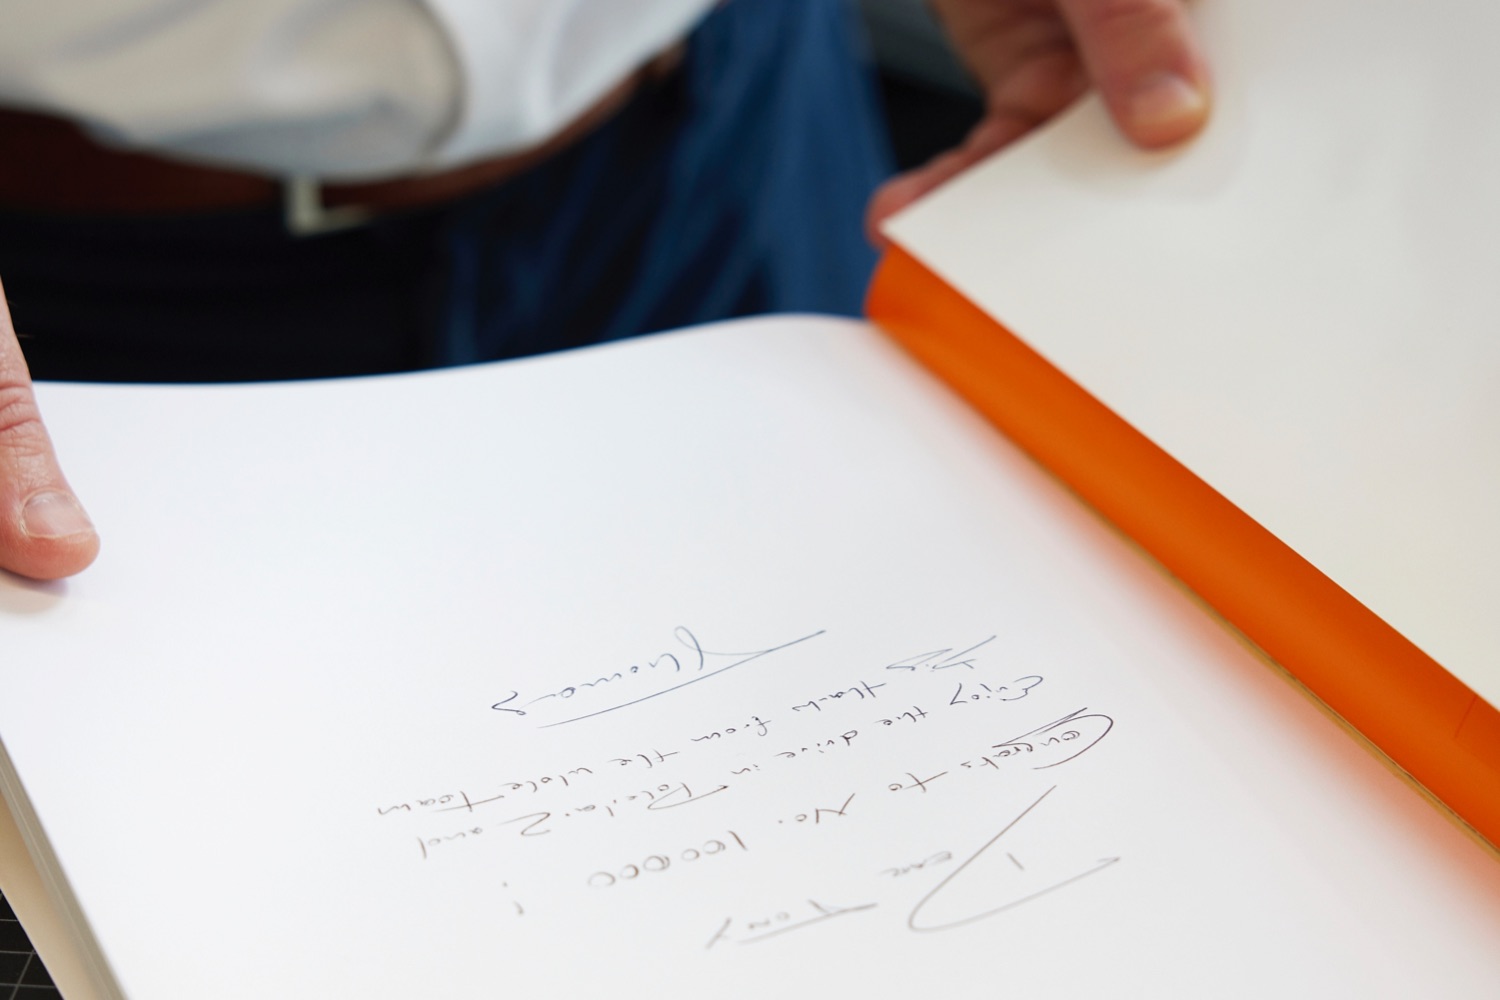 Dear Tony
Congrats to No. 100000!
Enjoy the drive in Polestar 2 and
Big thanks from the whole team
Thomas